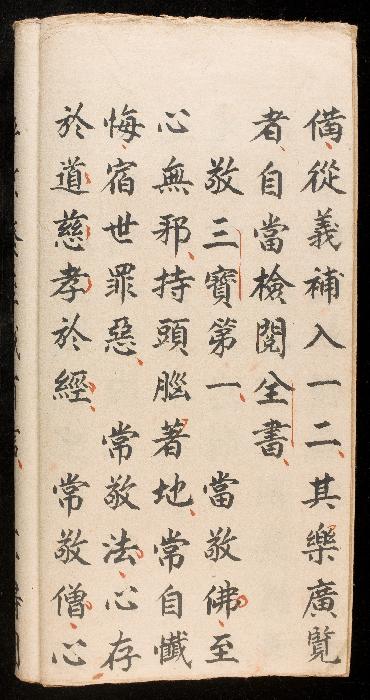 備從義補入一二其樂廣覽
者自當檢閱全書
敬三寶第一 當敬佛至
心無邪持頭腦著地常自懺
悔宿世罪惡 常敬法心存
於道慈孝於經 常敬僧心